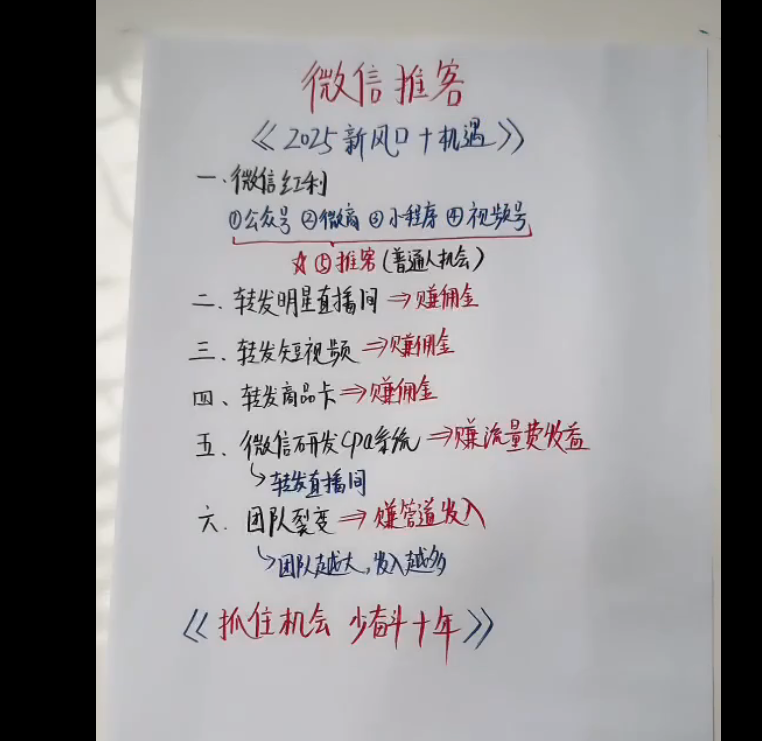 微信推客
《2025新风口+机遇》
一、微信红利
①公众号 ②微商 ③小程序 ④视频号
☆⑤推客(普通人机会)
二、转发明星直播间⇒赚佣金
三、转发短视频⇒赚佣金
四、转发商品卡⇒赚佣金
五、微信研发cpa系统⇒赚流量费收益
↳转发直播间
六、团队裂变⇒赚管道收入
↳团队越大,收入越多
《抓住机会 少奋斗十年》